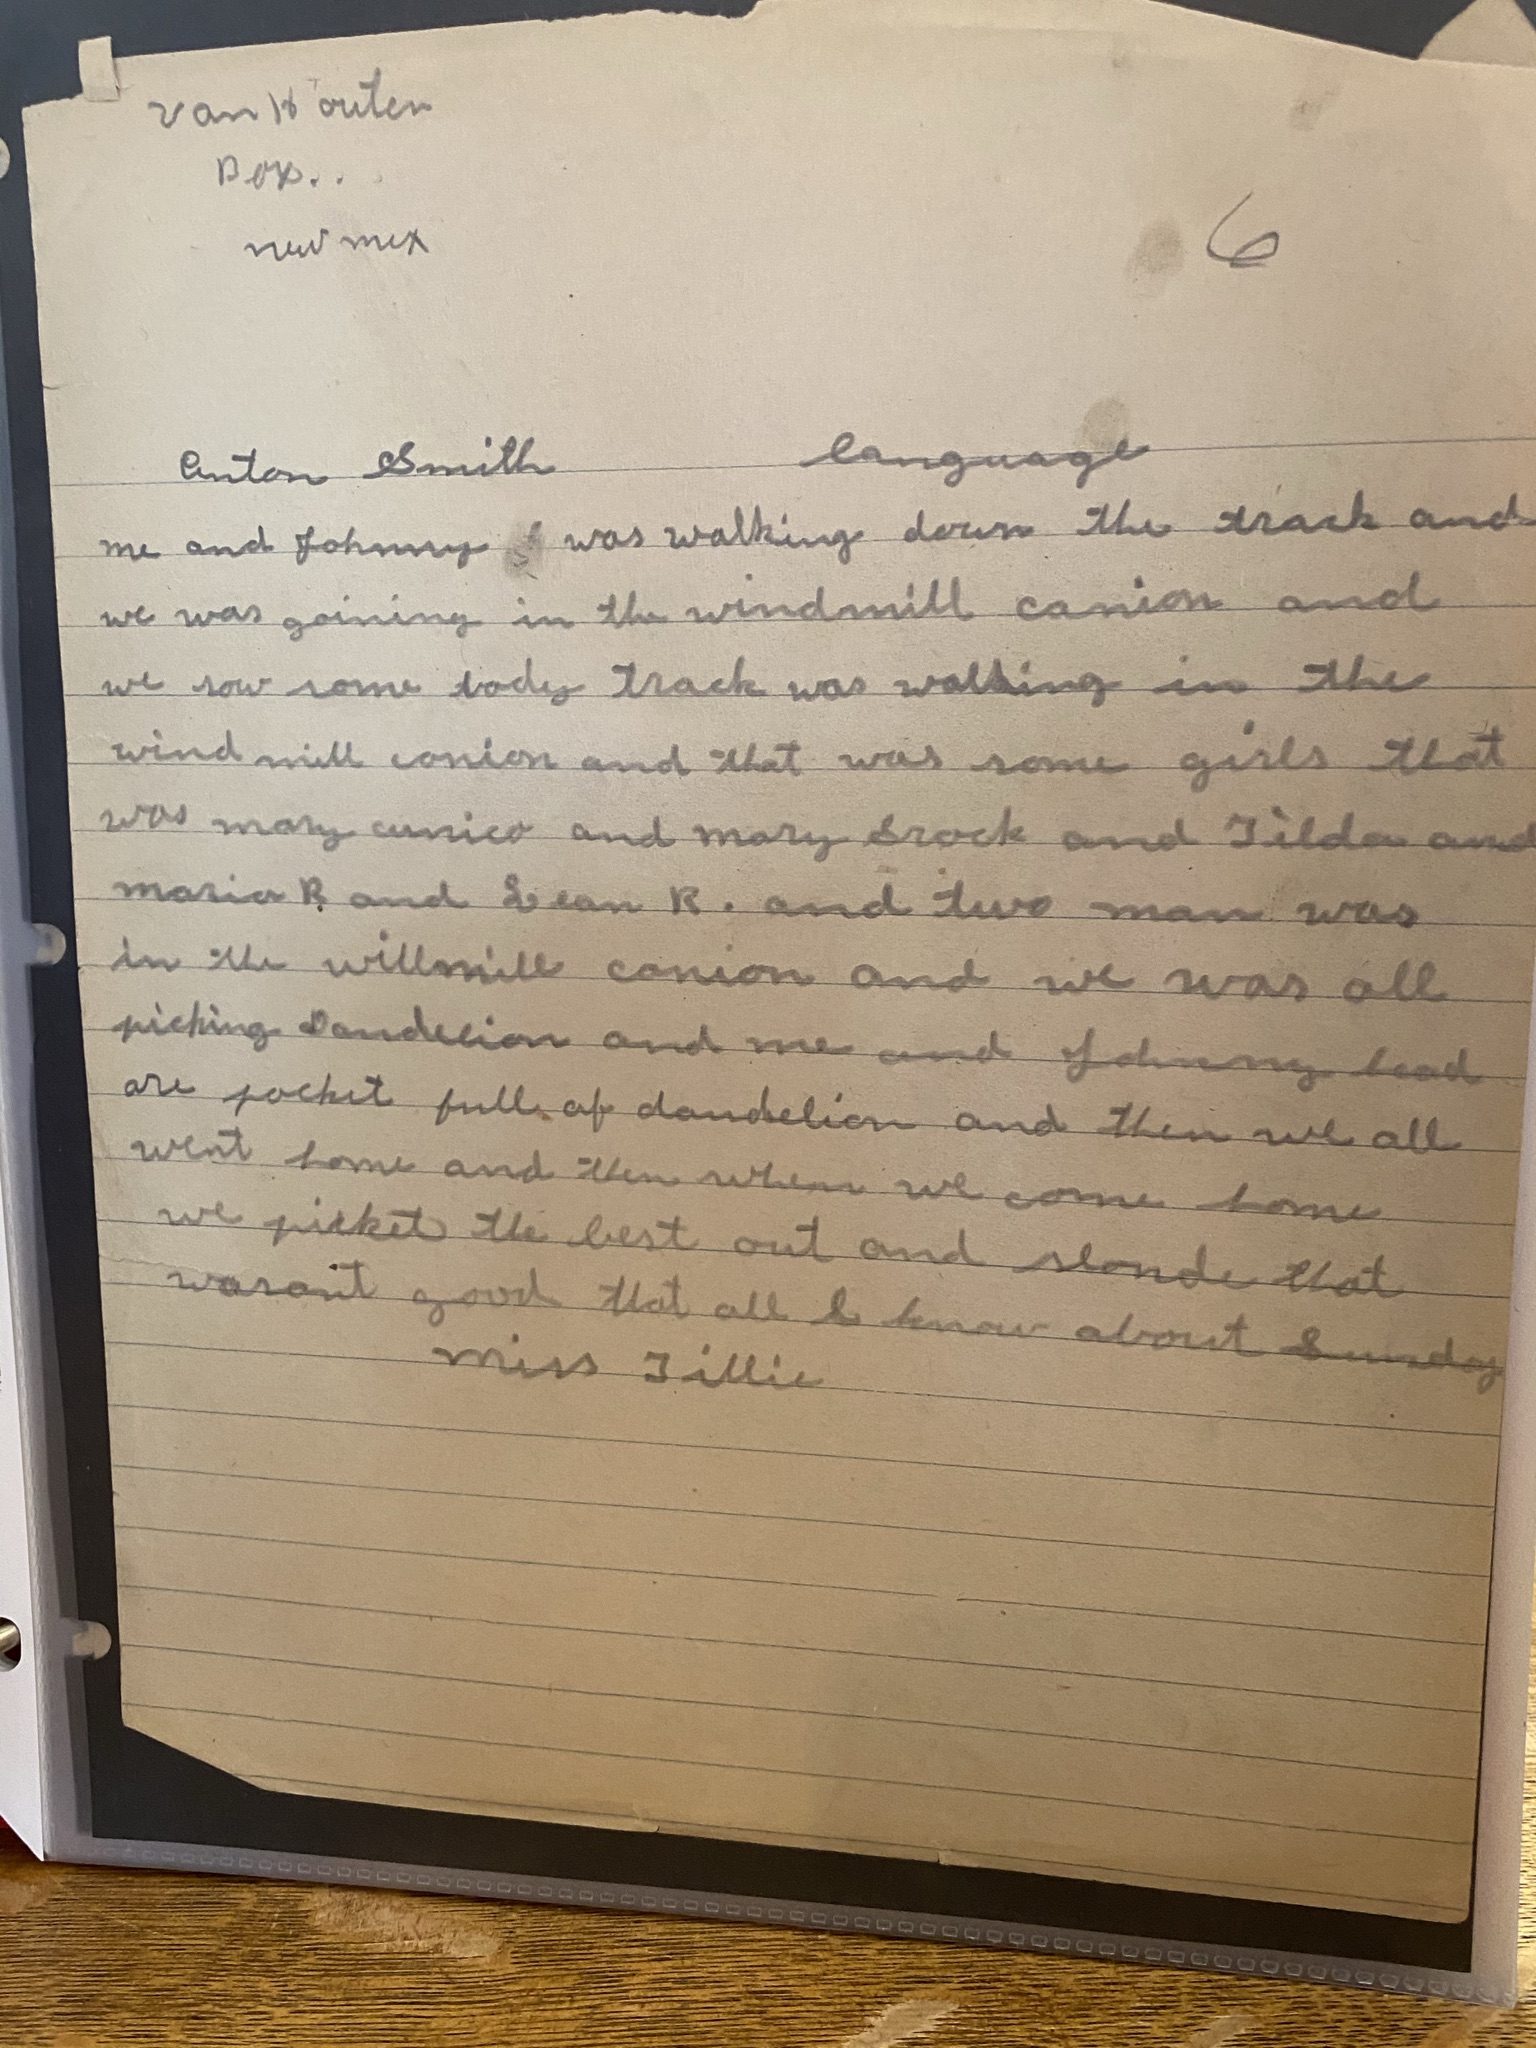 Van Houten
Box..
new mex
6
Anton Smith language
me and Johnny was walking down the track and
we was goining in the windmill canion and
we sow some body track was walking in the
wind mill canion and that was some girls that
was mary cunico and mary Srock and Tilda and
maria R. and Lean R. and two man was
in the willmill canion and we was all
picking Dandelion and me and Johnny head
are pocket full of dandelion and then we all
went home and then when we come home
we picket the best out and that
warant good that all I know about Sunday
Miss Tillie